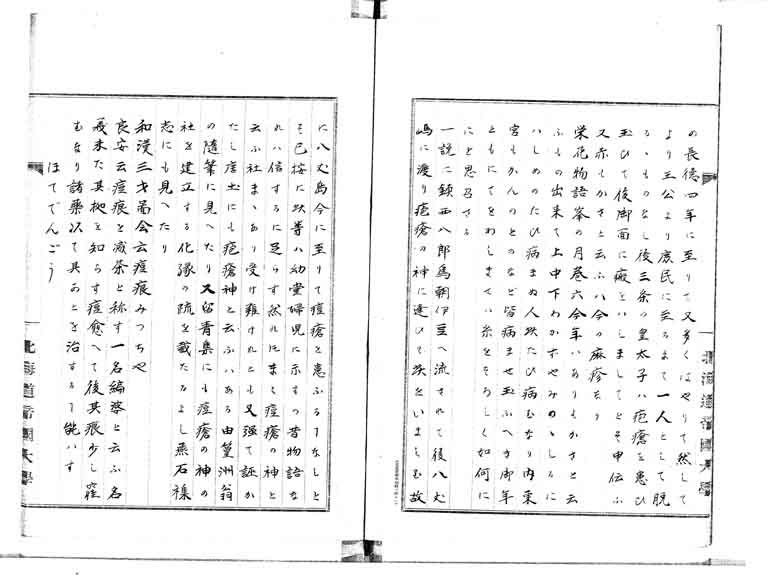 の長徳四年に至りて又多くはやりて然して
より王公より庶民に至るまて一人として脱
るゝものなし後三条の皇太子ハ疱瘡を患ひ
玉ひて後御面に瘢をいましてとそ申伝ふ
又赤もかさと云ふハ今の麻疹なり
栄花物語峯の月巻六今年ハありもかさと云
ふもの出来て上中下わかすやみのゝしるに
ハしめのたひ病まぬ人此たひ病むなり内東
宮もかんのとのなと皆病ませ玉ふへき御年
ともにてをわしませハ糸をそろしく如何に
にと思召さる
一説に鎮西八郎為朝伊豆へ流されて後八丈
嶋に渡り疱瘡の神に逢ひて此をいましむ故
に八丈島今に至りて痘瘡を患ふるりなしと
そ已按に此等ハ幼童婦児に示すつ昔物語な
れハ信するに足らす然れ𪜈まく痘瘡の神と
云ふ社まゝあり受け難けれとも又強て誣か
たし唐土にも疱瘡神と云ふハある由篁洲翁
の随筆に見へたり又留青集にも痘瘡の神の
社を建立する化縁の疏を載たるよし燕石襍
志にも見へたり
和漢三才啚会云痘痕みつちや
良安云痘痕を減茶と称す一名綸婆と云ふ名
義未た其拠を知らす痘愈へて後其痕少し窪
むなり諸薬以て其あとを治するり能ハす
ほてでんごう
北海道帝國大學
北海道帝國大學